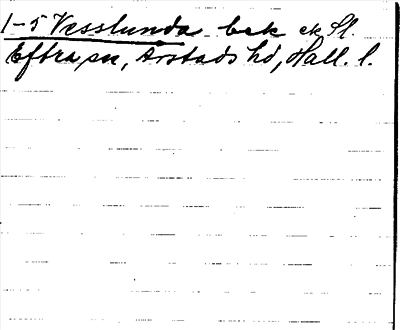 1-5 Vesslunda bek ek Sl.
Eftra sn, Årstads hd, Hall. l.